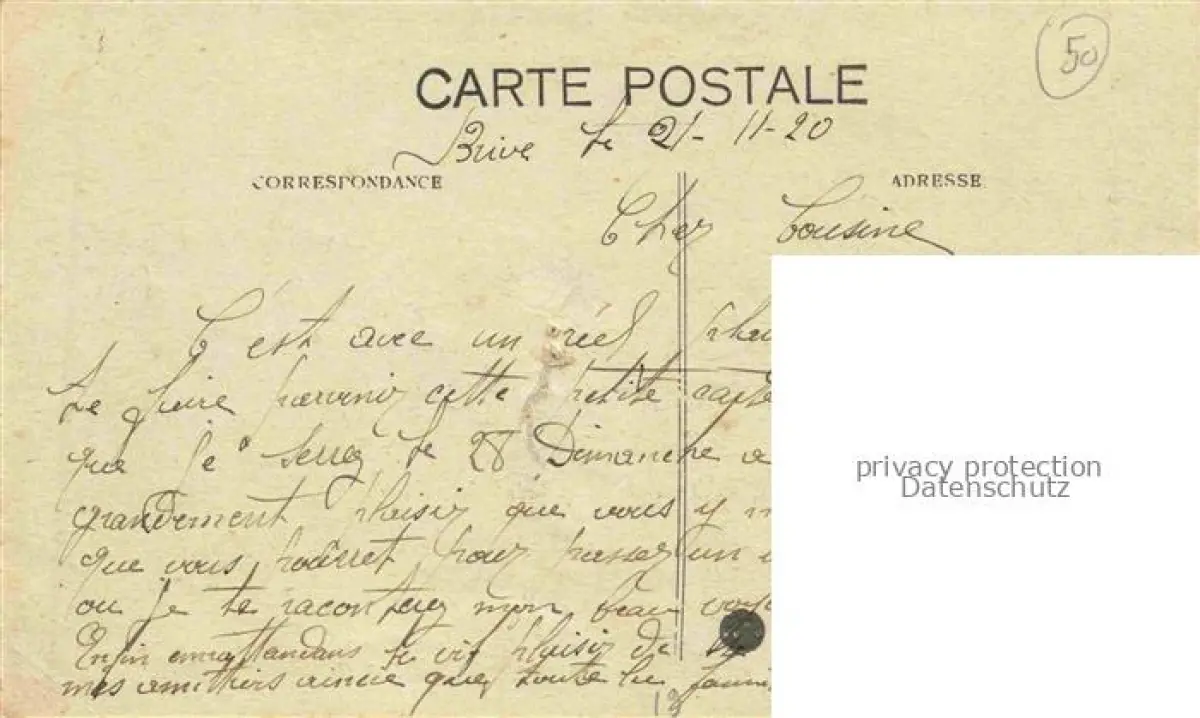 50
CARTE POSTALE
Brive le 21-11-20
CORRESPONDANCE
ADRESSE
Cher Cousine
C'est avec un réel
te faire parvenir cette petite carte
que je serrez le 28 Dimanche a
grandement plaisir que vous y
que vous pourret pour passer un
ou je te raconterez mon beau
Enfin enrattandans le vif plaisir de
mes amittiers aincie que toute la
18
privacy protection
Datenschutz